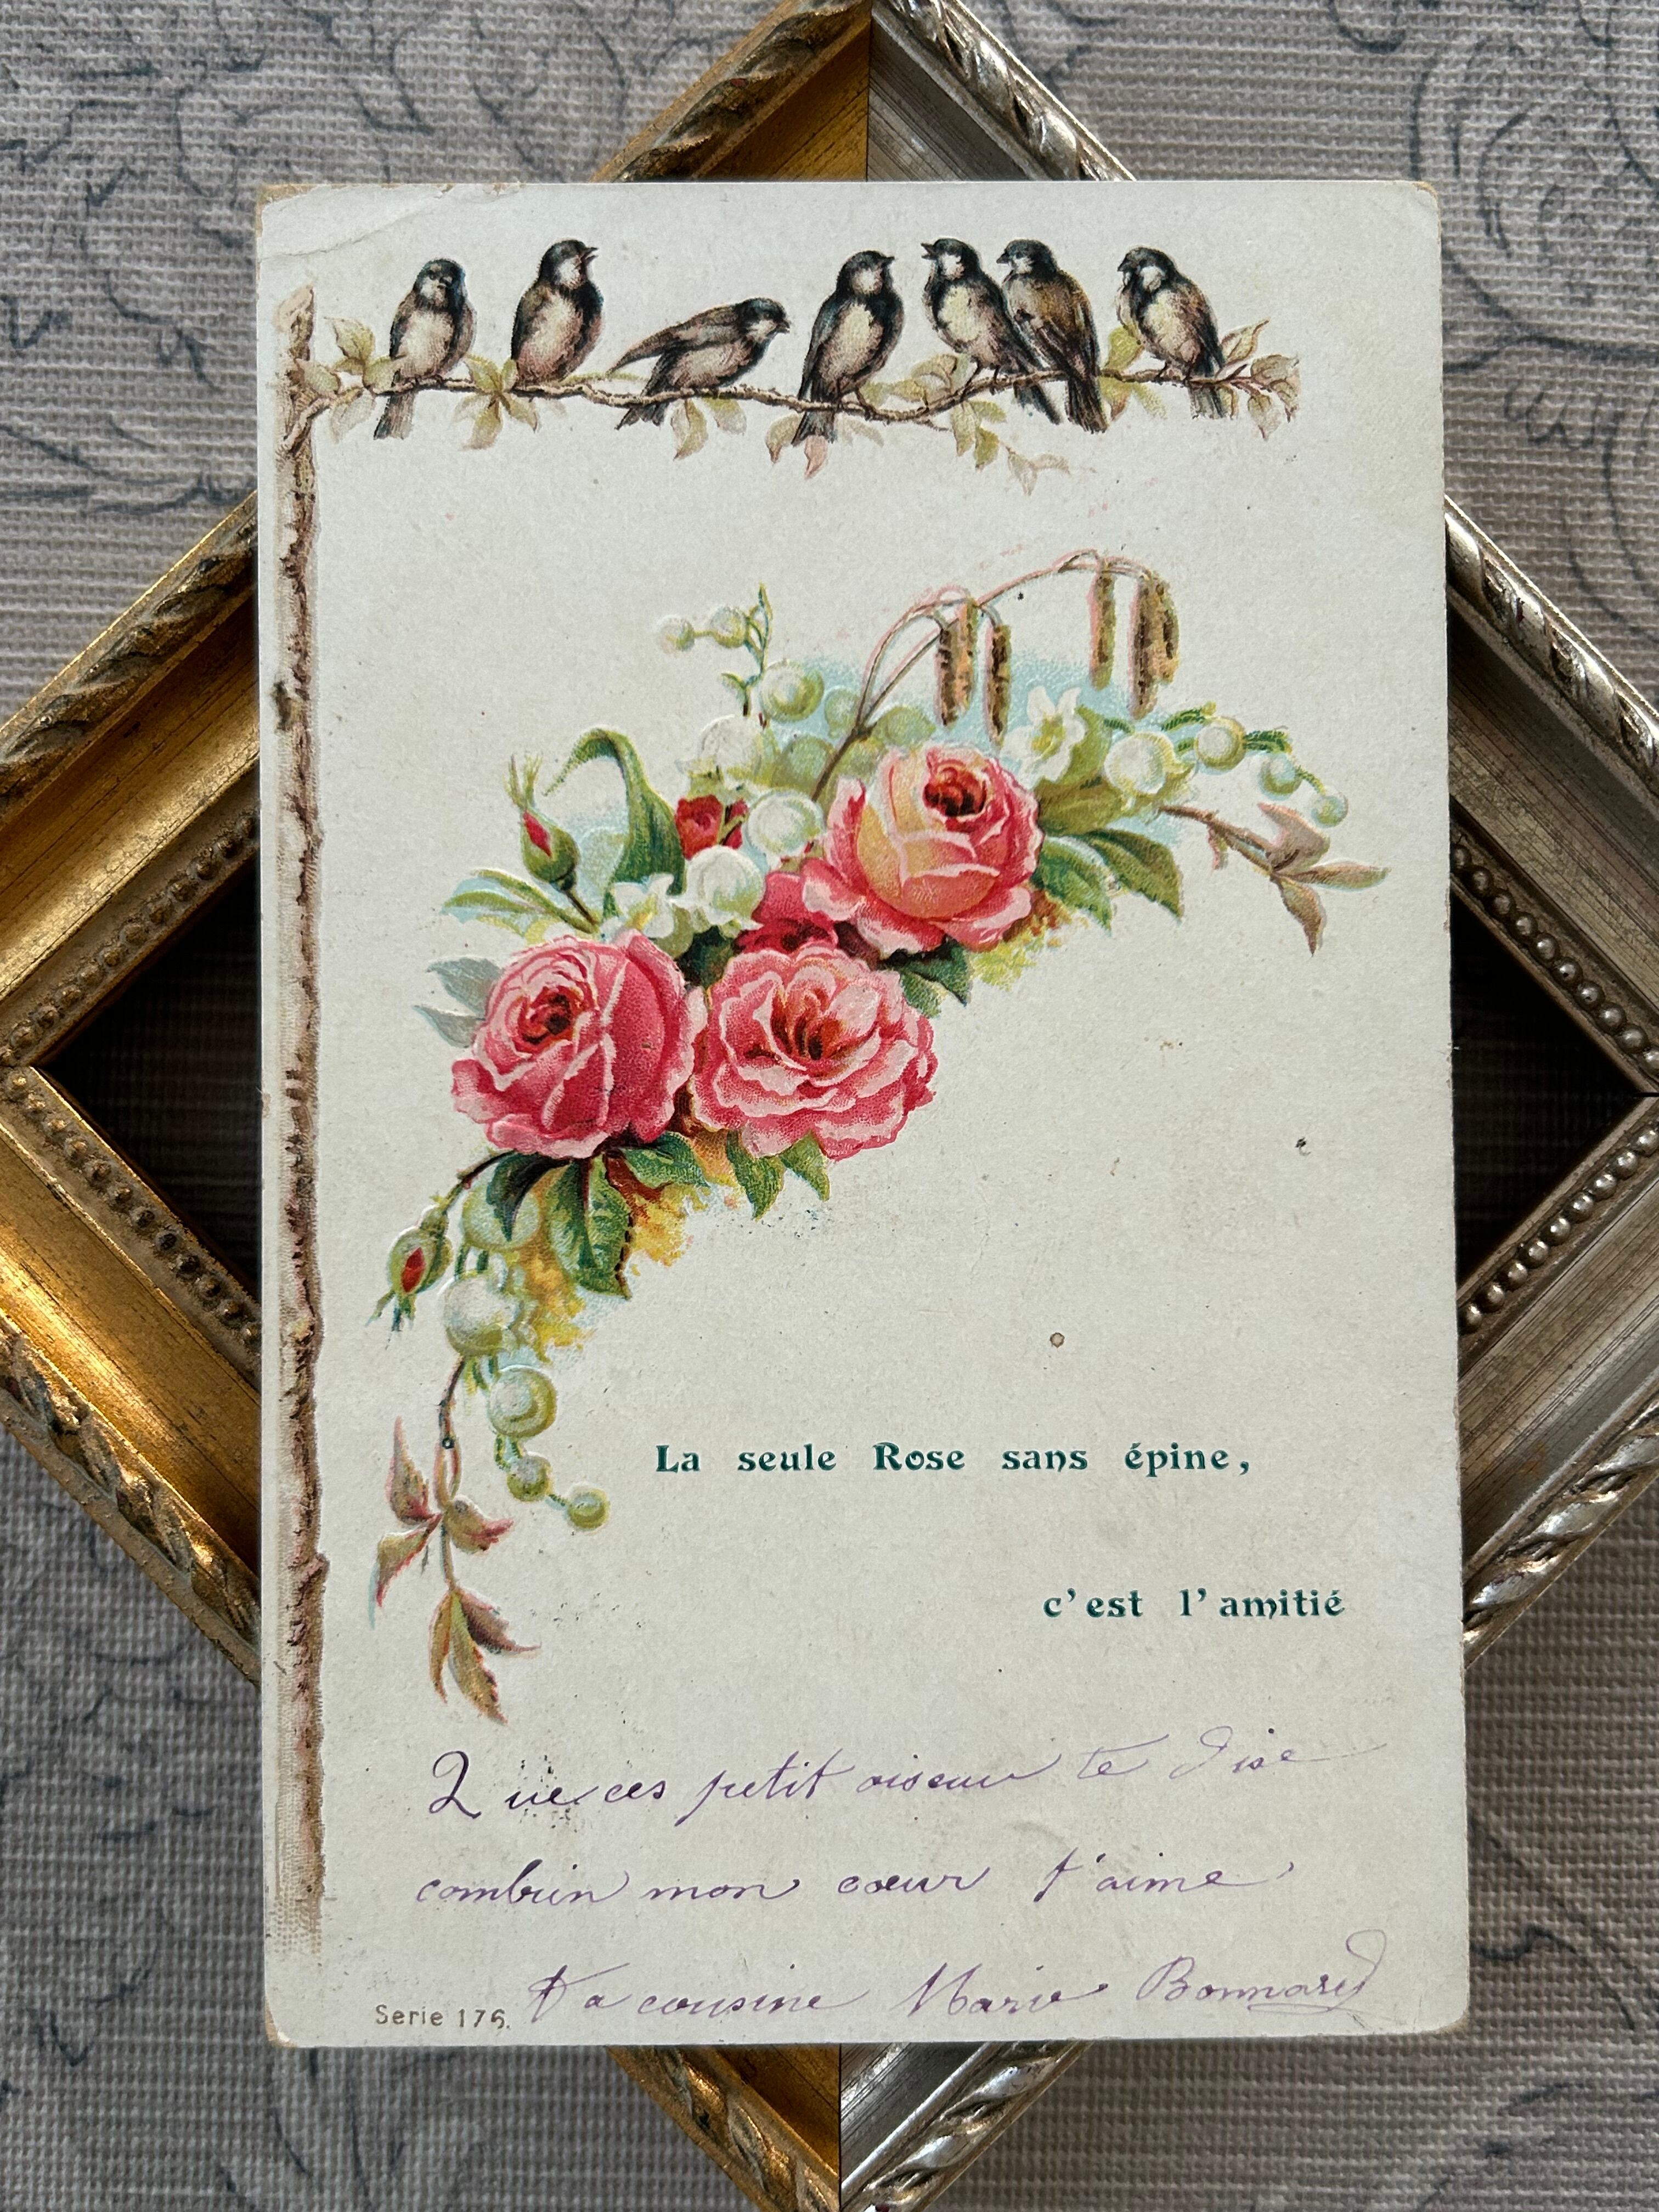 La seule Rose sans épine,
c'est l'amitié
Que ces petit oiseau te dise
combien mon cœur t'aime
Ta cousine Marie Bonnard
Serie 176.